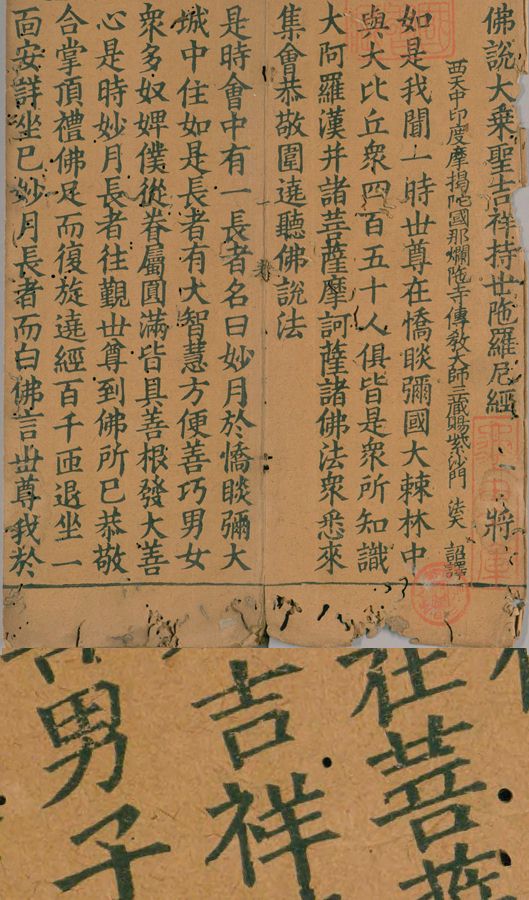 佛說大乘聖吉祥持世陁羅尼經 將
西天中印度摩揭陁國那爛陁寺傳教大師三藏賜紫沙門 法天 詔譯
如是我聞一時世尊在憍睒彌國大棘林中
與大比丘衆四百五十人俱皆是衆所知識
大阿羅漢并諸菩薩摩訶薩諸佛法衆悉來
集會恭敬圍遶聽佛說法
是時會中有一長者名曰妙月於憍睒彌大
城中住如是長者有大智慧方便善巧男女
衆多奴婢僕從眷屬圓滿皆具善根發大善
心是時妙月長者往觀世尊到佛所已恭敬
合掌頂禮佛足而復旋遶經百千匝退坐一
面安詳坐已妙月長者而白佛言世尊我於
在菩薩
吉祥
男子